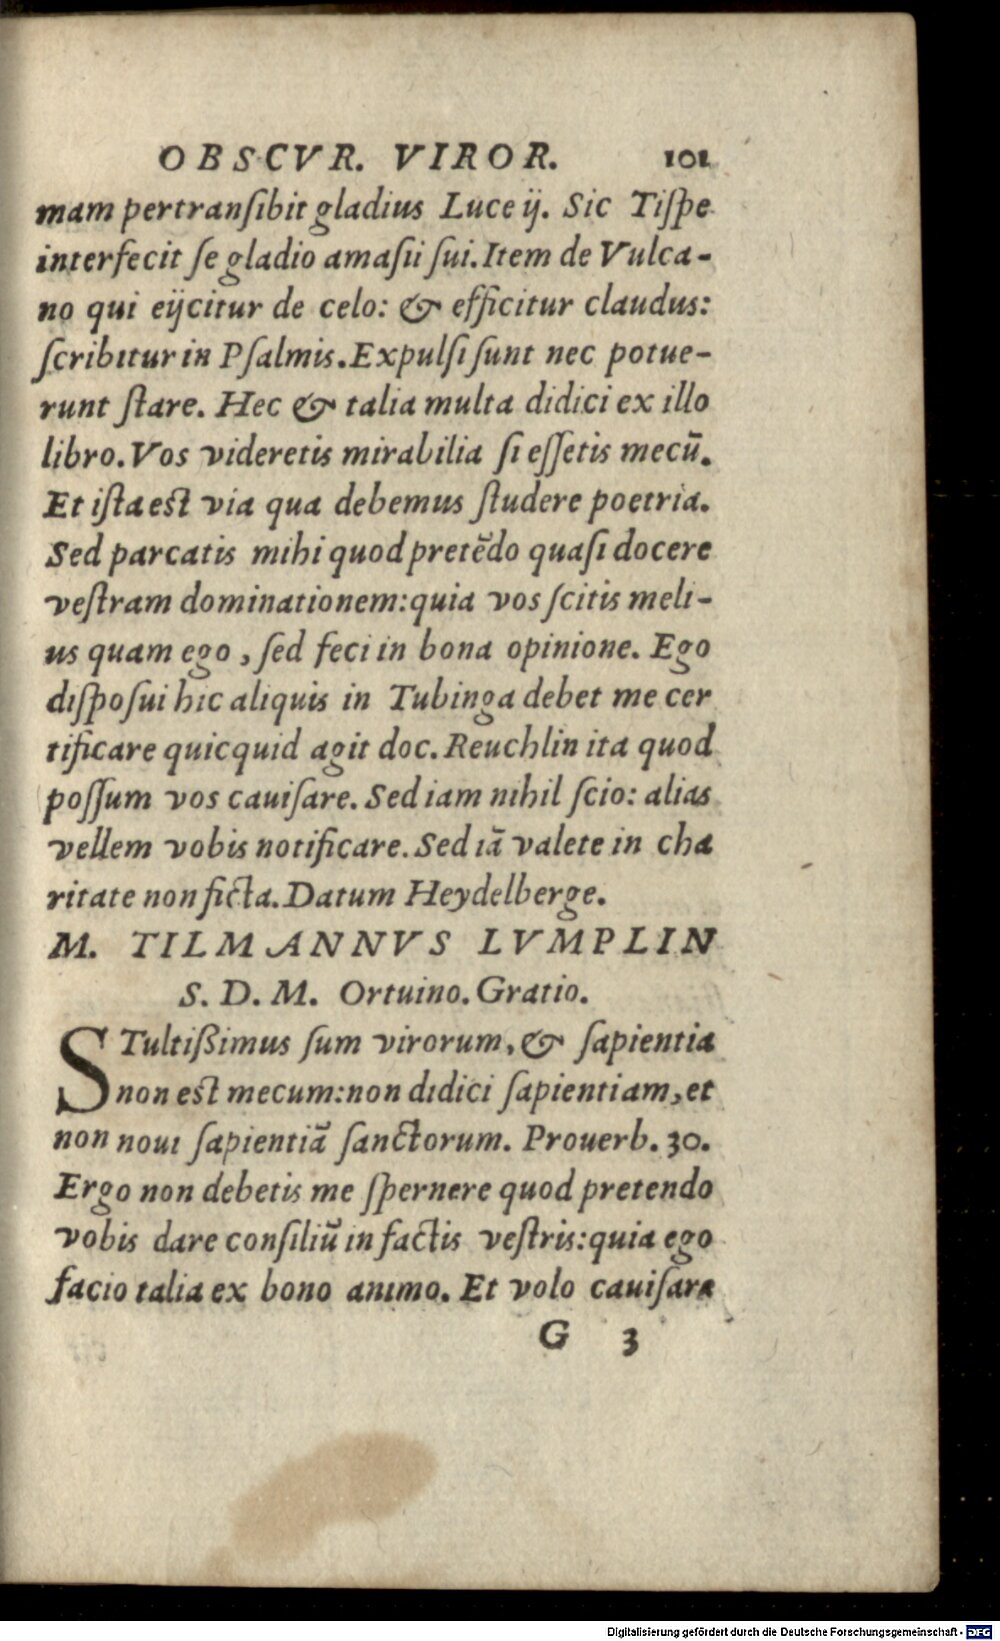 OBSCVR. VIROR. 101
mam pertranſibit gladius Luce ij. Sic Tiſpe
interfecit ſe gladio amaſii ſui. Item de Vulca-
no qui eijcitur de celo: & efficitur claudus:
ſcribitur in Pſalmis. Expulſi ſunt nec potue-
runt ſtare. Hec & talia multa didici ex illo
libro. Vos videretis mirabilia ſi eſſetis mecū.
Et iſta est via qua debemus ſtudere poetria.
Sed parcatis mihi quod pretēdo quaſi docere
veſtram dominationem: quia vos ſcitis meli-
us quam ego, ſed feci in bona opinione. Ego
diſpoſui hic aliquis in Tubinga debet me cer
tificare quicquid agit doc. Reuchlin ita quod
poſſum vos cauiſare. Sed iam nihil ſcio: alias
vellem vobis notificare. Sed iā valete in cha
ritate non ficta. Datum Heydelberge.
M. TILMANNVS LVMPLIN
S. D. M. Ortuino. Gratio.
STultißimus ſum virorum, & ſapientia
non est mecum: non didici ſapientiam, et
non noui ſapientiā ſanctorum. Prouerb. 30.
Ergo non debetis me ſpernere quod pretendo
vobis dare conſiliū in factis veſtris: quia ego
facio talia ex bono animo. Et volo cauiſare
G 3
Digitalisierung gefördert durch die Deutsche Forschungsgemeinschaft - DFG